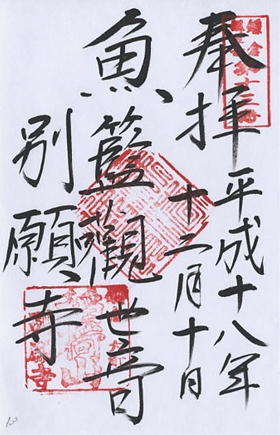 奉拝
平成十八年
十二月十日
魚籃觀世音
別願寺